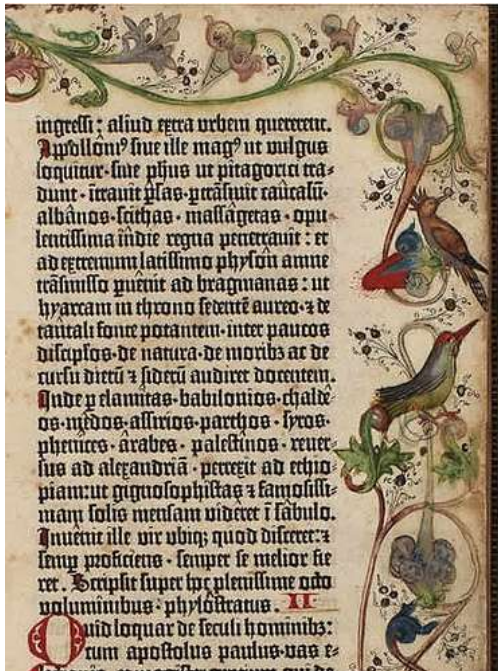 ingressi: aliud extra urbem quererent.
Apolloni⁹ sive ille mag⁹ ut vulgus
loquitur · sive ph̄us ut pitagorici tra-
dunt · ītravit p̄sas · p̄trāsivit caucasū ·
albānos · scithas · massāgetas · opu-
lentissima indie regna penetravit : et
ad extremum latissimo physōn amne
trāsmisso p̄venit ad bragmanas : ut
hyarcam in throno sedentē aureo · ⁊ de
tantali fonte potantem · inter paucos
discip̄los · de natura · de morib⁊ ac de
cursu dierū ⁊ siderū audiret docentem.
Inde p̄ elamitas · babilonios · chalde-
os · mēdos · assirios · parthos · syros ·
phenices · ārabes · palestinos · rever-
sus ad alexandriā · perrexit ad ethio-
piam: ut gignosophistas ⁊ famosissi-
mam solis mensam videret ī sabulo.
Invenit ille vir ubiq⁊ quod disceret: ⁊
semp̄ proficiens · semper se melior fie-
ret. Scripsit super hoc plenissime octo
voluminibus · phylostratus. II
Quid loquar de seculi hominib⁊:
cum apostolus paulus · vas e-